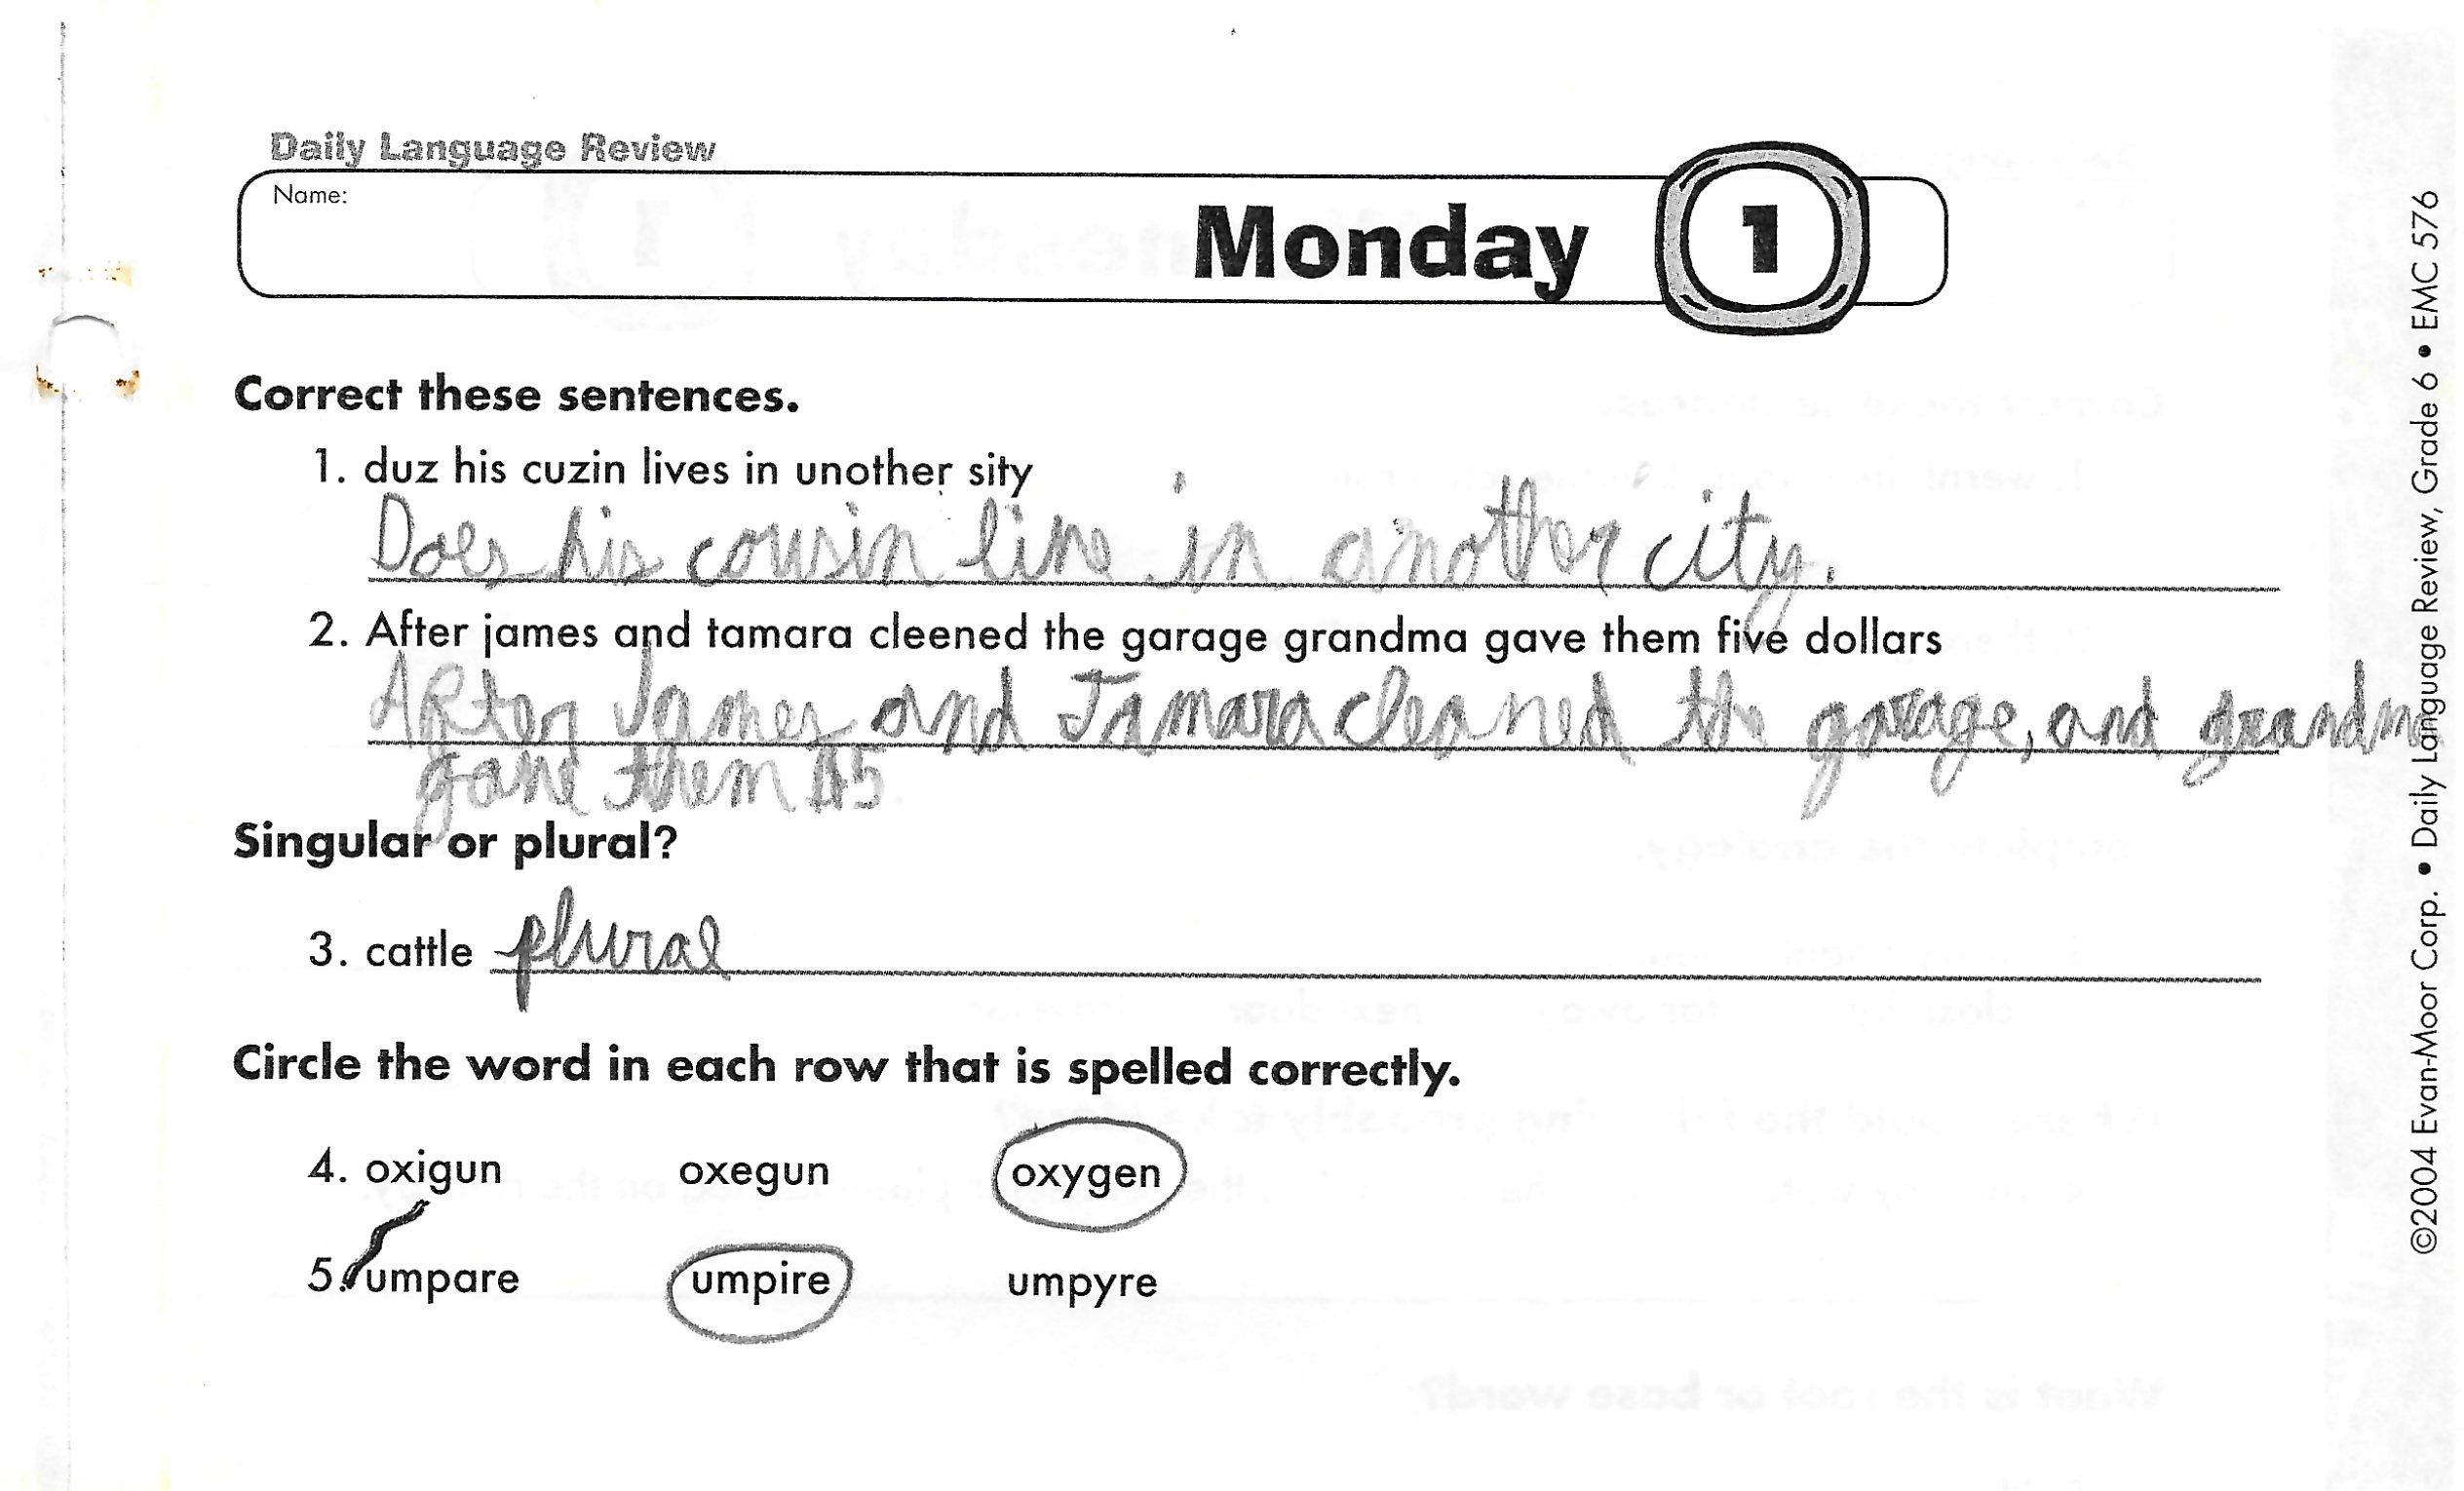 Daily Language Review
Name:
Monday 1
Correct these sentences.
1. duz his cuzin lives in unother sity
Does his cousin live in another city.
2. After james and tamara cleened the garage grandma gave them five dollars
After James and Tamara cleaned the garage, and grandma
gave them $5
Singular or plural?
3. cattle plural
Circle the word in each row that is spelled correctly.
4. oxigun oxegun oxygen
5. umpare umpire umpyre
©2004 Evan-Moor Corp. • Daily Language Review, Grade 6 • EMC 576